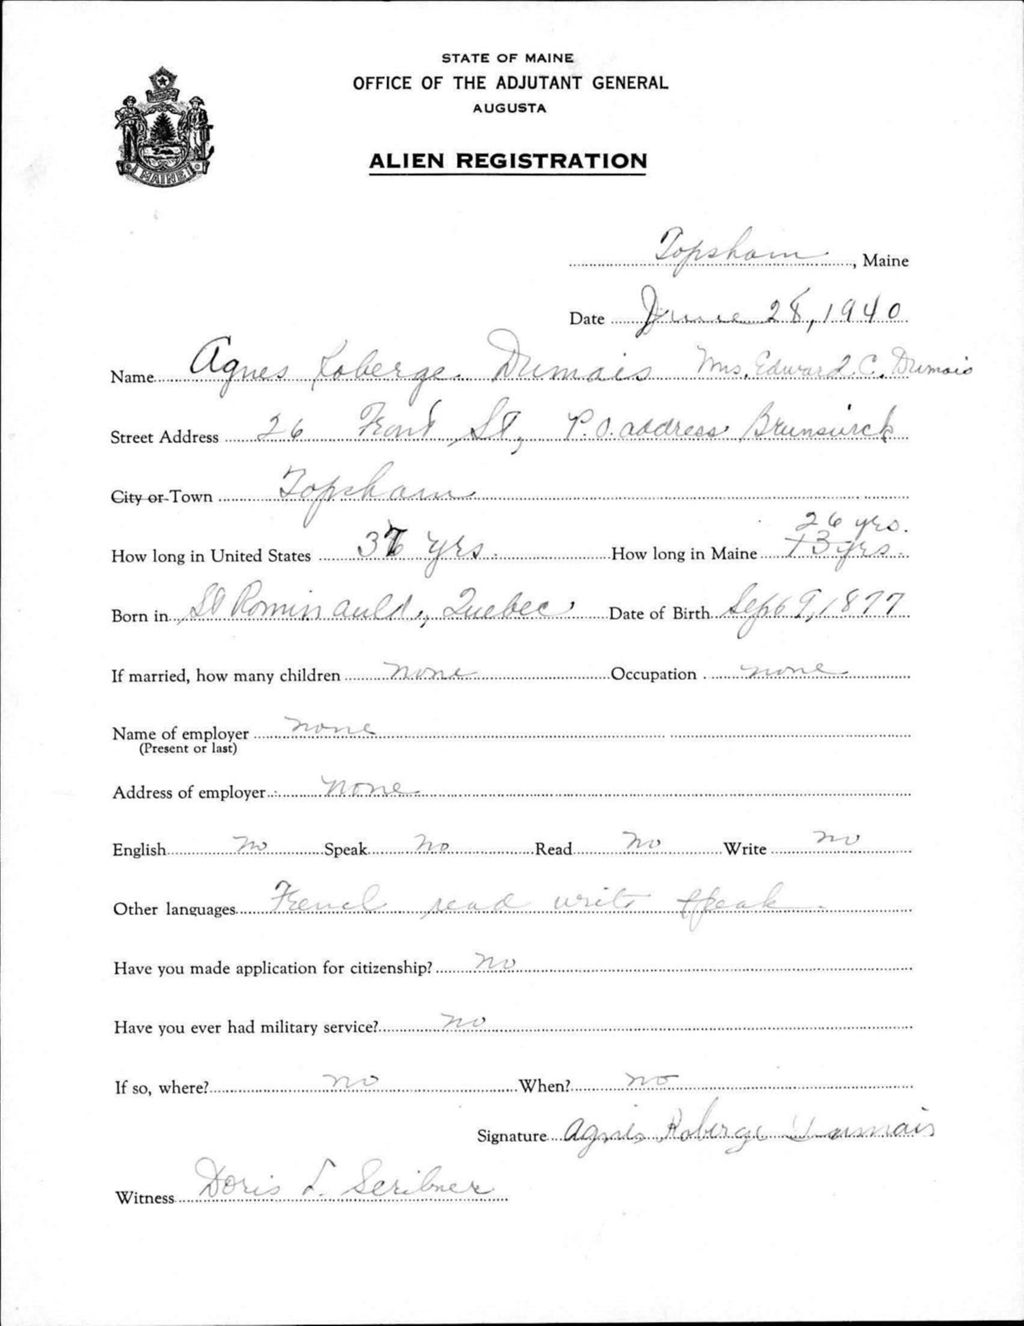 STATE OF MAINE
OFFICE OF THE ADJUTANT GENERAL
AUGUSTA
MAINE
ALIEN REGISTRATION
Topsham, Maine
Date June 28, 1940
Name Agnes Roberge Dumais Mrs. Edward C. Dumais
Street Address 26 Front St, P.O. address Brunswick
City or Town Topsham
26 yrs.
How long in United States yrs. How long in Maine 13 yrs.
Born in St Rominauld, Quebec Date of Birth Sept 9, 1877
If married, how many children none Occupation none
Name of employer none
(Present or last)
Address of employer none
English no Speak no Read no Write no
Other languages French read write speak
Have you made application for citizenship? no
Have you ever had military service? no
If so, where? no When? no
Signature Agnes Roberge Dumais
Witness Doris L. Scribner